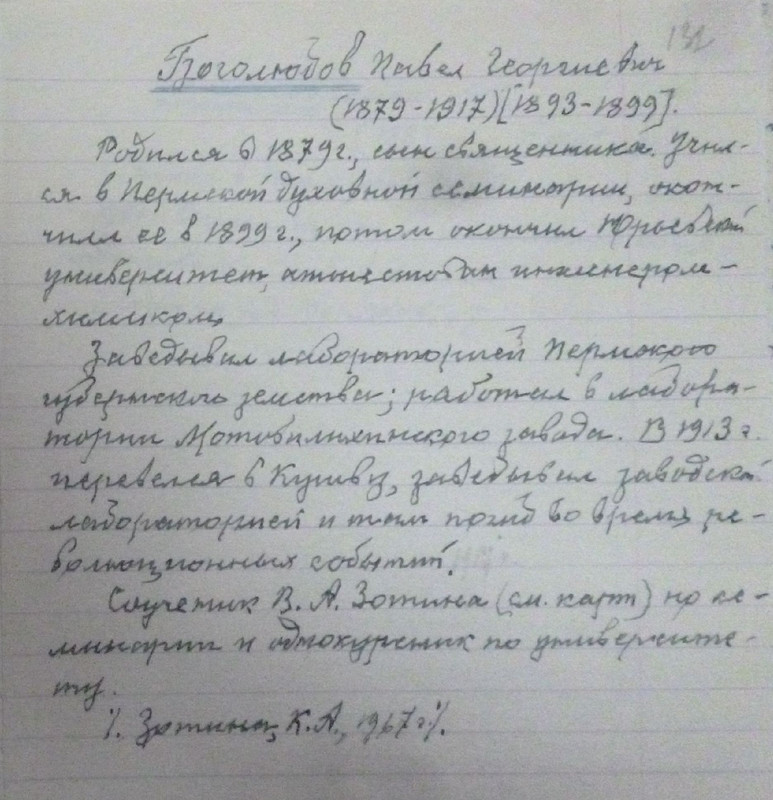 132
Боголюбов Павел Георгиевич
(1879-1917)[1893-1899].
Родился в 1879 г., сын священника. Учил-
ся в Пермской духовной семинарии, окон-
чил ее в 1899 г., потом окончил Юрьевский
университет, аттестован инженером-
химиком.
Заведывал лабораторией Пермского
губернского земства; работал в лабора-
тории Мотовилихинского завода. В 1913 г.
перевелся в Кушву, заведывал заводской
лабораторией и там погиб во время ре-
волюционных событий.
Соученик В. А. Зотина (см. карт) по се-
минарии и однокурсник по университе-
ту.
%. Зотина, К.А., 1967 г.%.